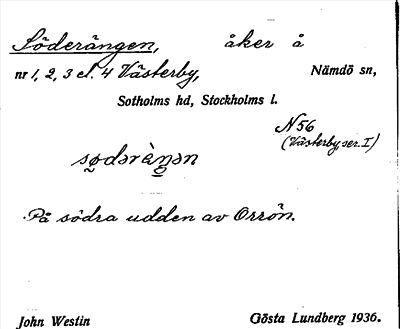 Söderängen, åker å
nr 1, 2, 3 el. 4 Västerby, Nämdö sn,
Sotholms hd, Stockholms l.
N 56
(Västerby ser. I)
sødəràŋən
På södra udden av Orrön.
John Westin Gösta Lundberg 1936.